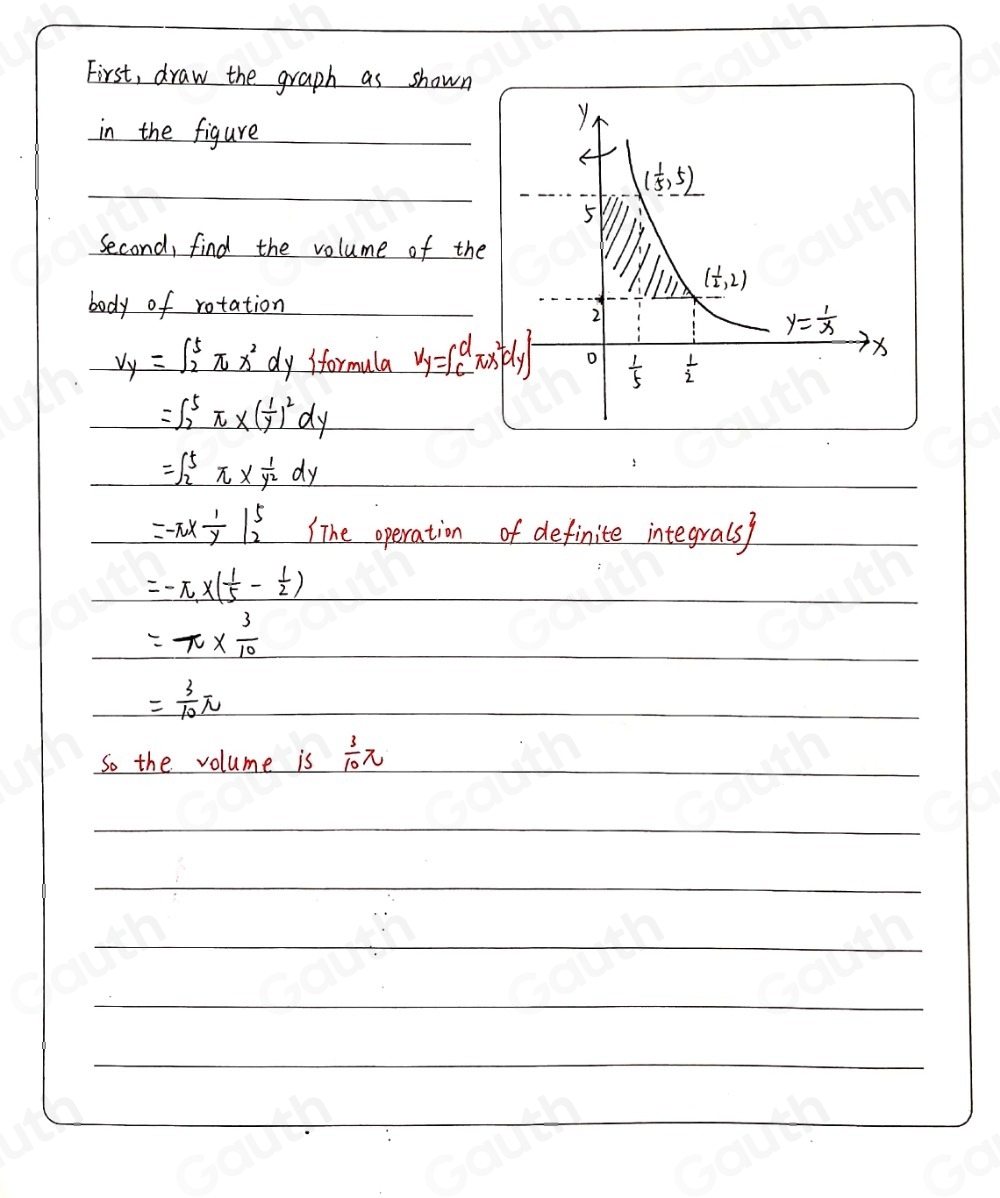 First, draw the graph as shown
in the figure
Second, find the volume of the
body of rotation
Vy = ∫₂⁵ π x² dy {formula Vy=∫c^d πx²dy}
=∫₂⁵ π × (1/y)² dy
=∫₂⁵ π × 1/y² dy
=-π× 1/y |₂⁵ {The operation of definite integrals}
=-π×(1/5 - 1/2)
= π × 3/10
= 3/10 π
So the volume is 3/10 π
y
(1/5, 5)
5
(1/2, 2)
2
y = 1/x
x
0
1/5
1/2
Gauth